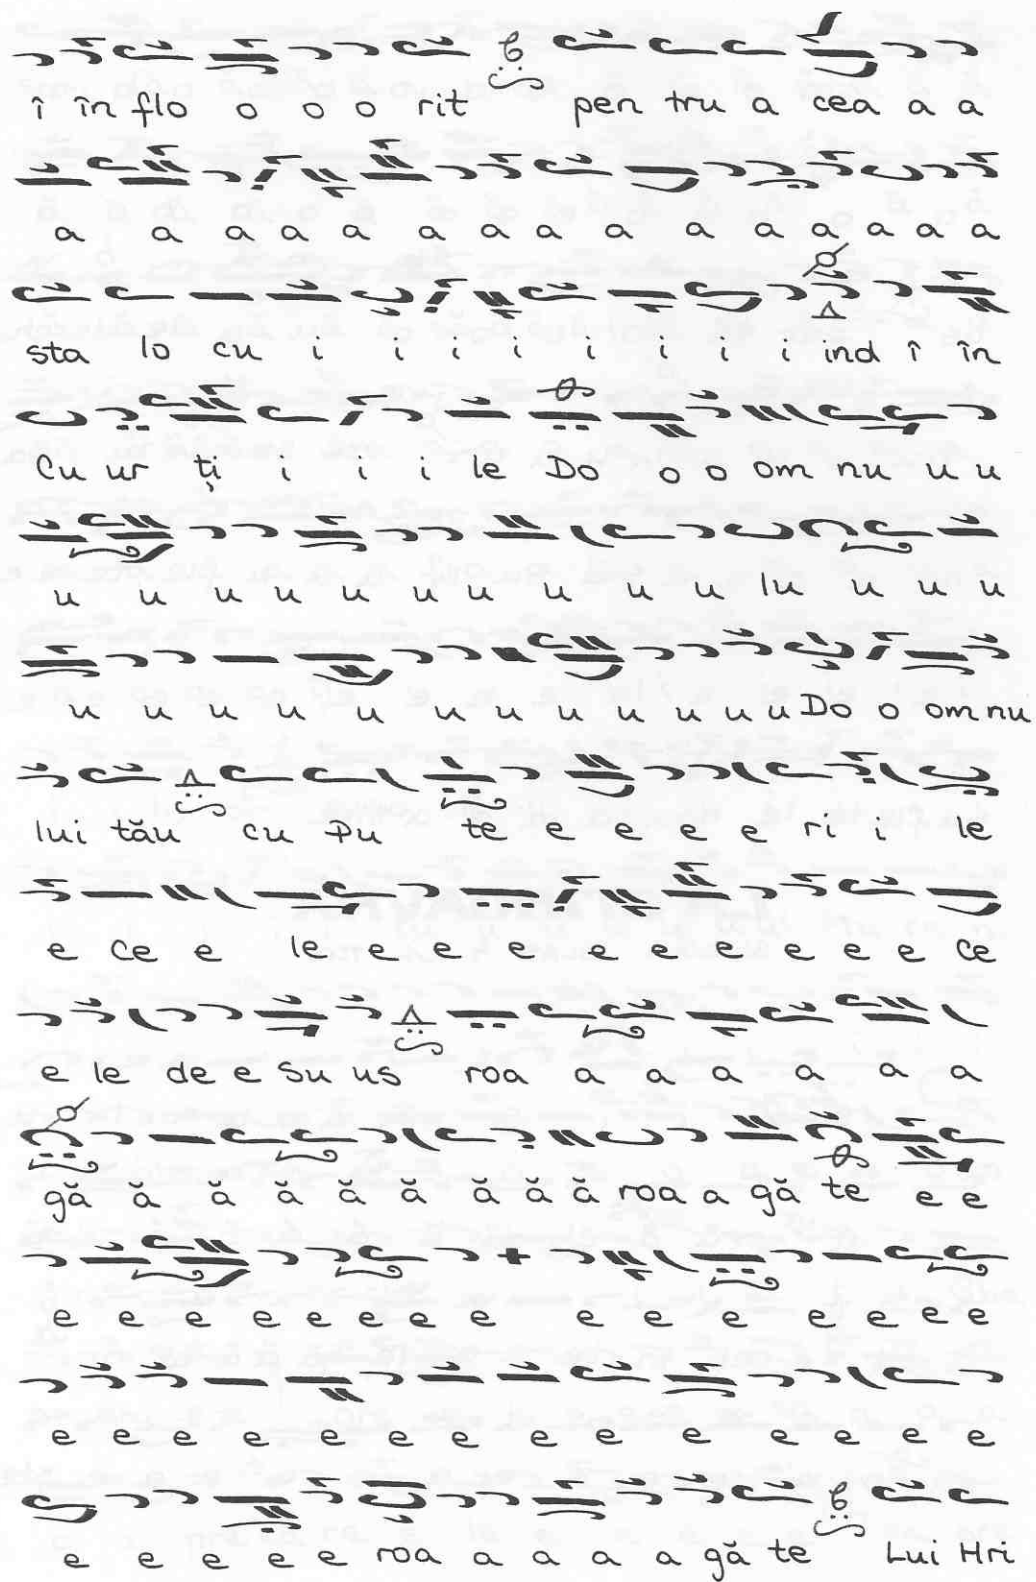 î în flo o o o rit pen tru a cea a a
a a a a a a a a a a a a a a a
sta lo cu i i i i i i i i ind î în
Cu ur ți i i i le Do o o om nu u u
u u u u u u u u u u lu u u u
u u u u u u u u u u u u Do o om nu
lui tău cu Pu te e e e e ri i le
e ce e le e e e e e e e e e ce
e le de e Su us roa a a a a a a
gă ă ă ă ă ă ă ă ă roa a gă te e e
e e e e e e e e e e e e e e
e e e e e e e e e e e e e e
e e e e e roa a a a a gă te Lui Hri